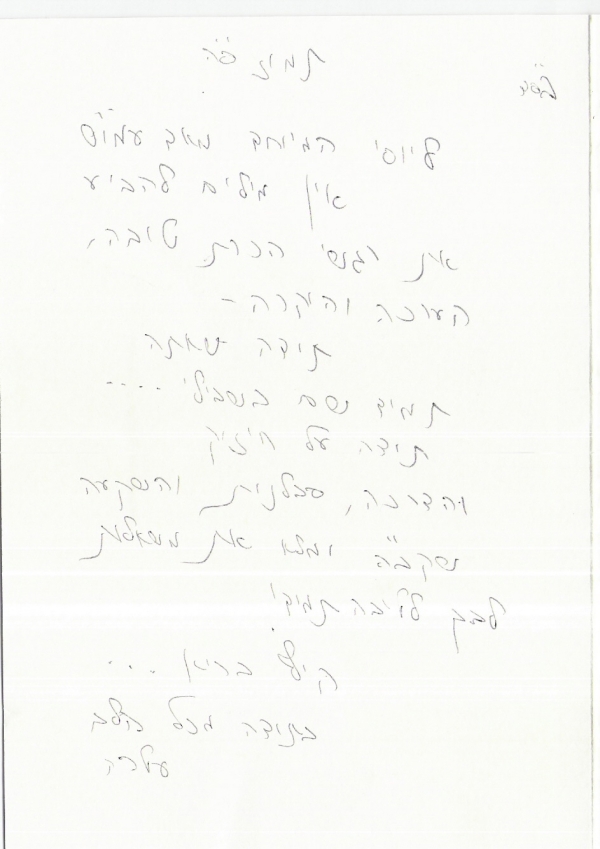 בס"ד
תמוז פ"ה
ליוסי המיוחד מאב עמו"ס
אין מילים להביע
את רגשי הכרת טובה,
הערכה והוקרה -
תודה שאתה
תמיד שם בשבילי ....
תודה על חיזוק
והדרכה, סבלנות והשקעה
שהקב"ה ימלא את משאלות
לבך לטובה תמיד!
קיץ בריא ...
בתודה מכל הלב